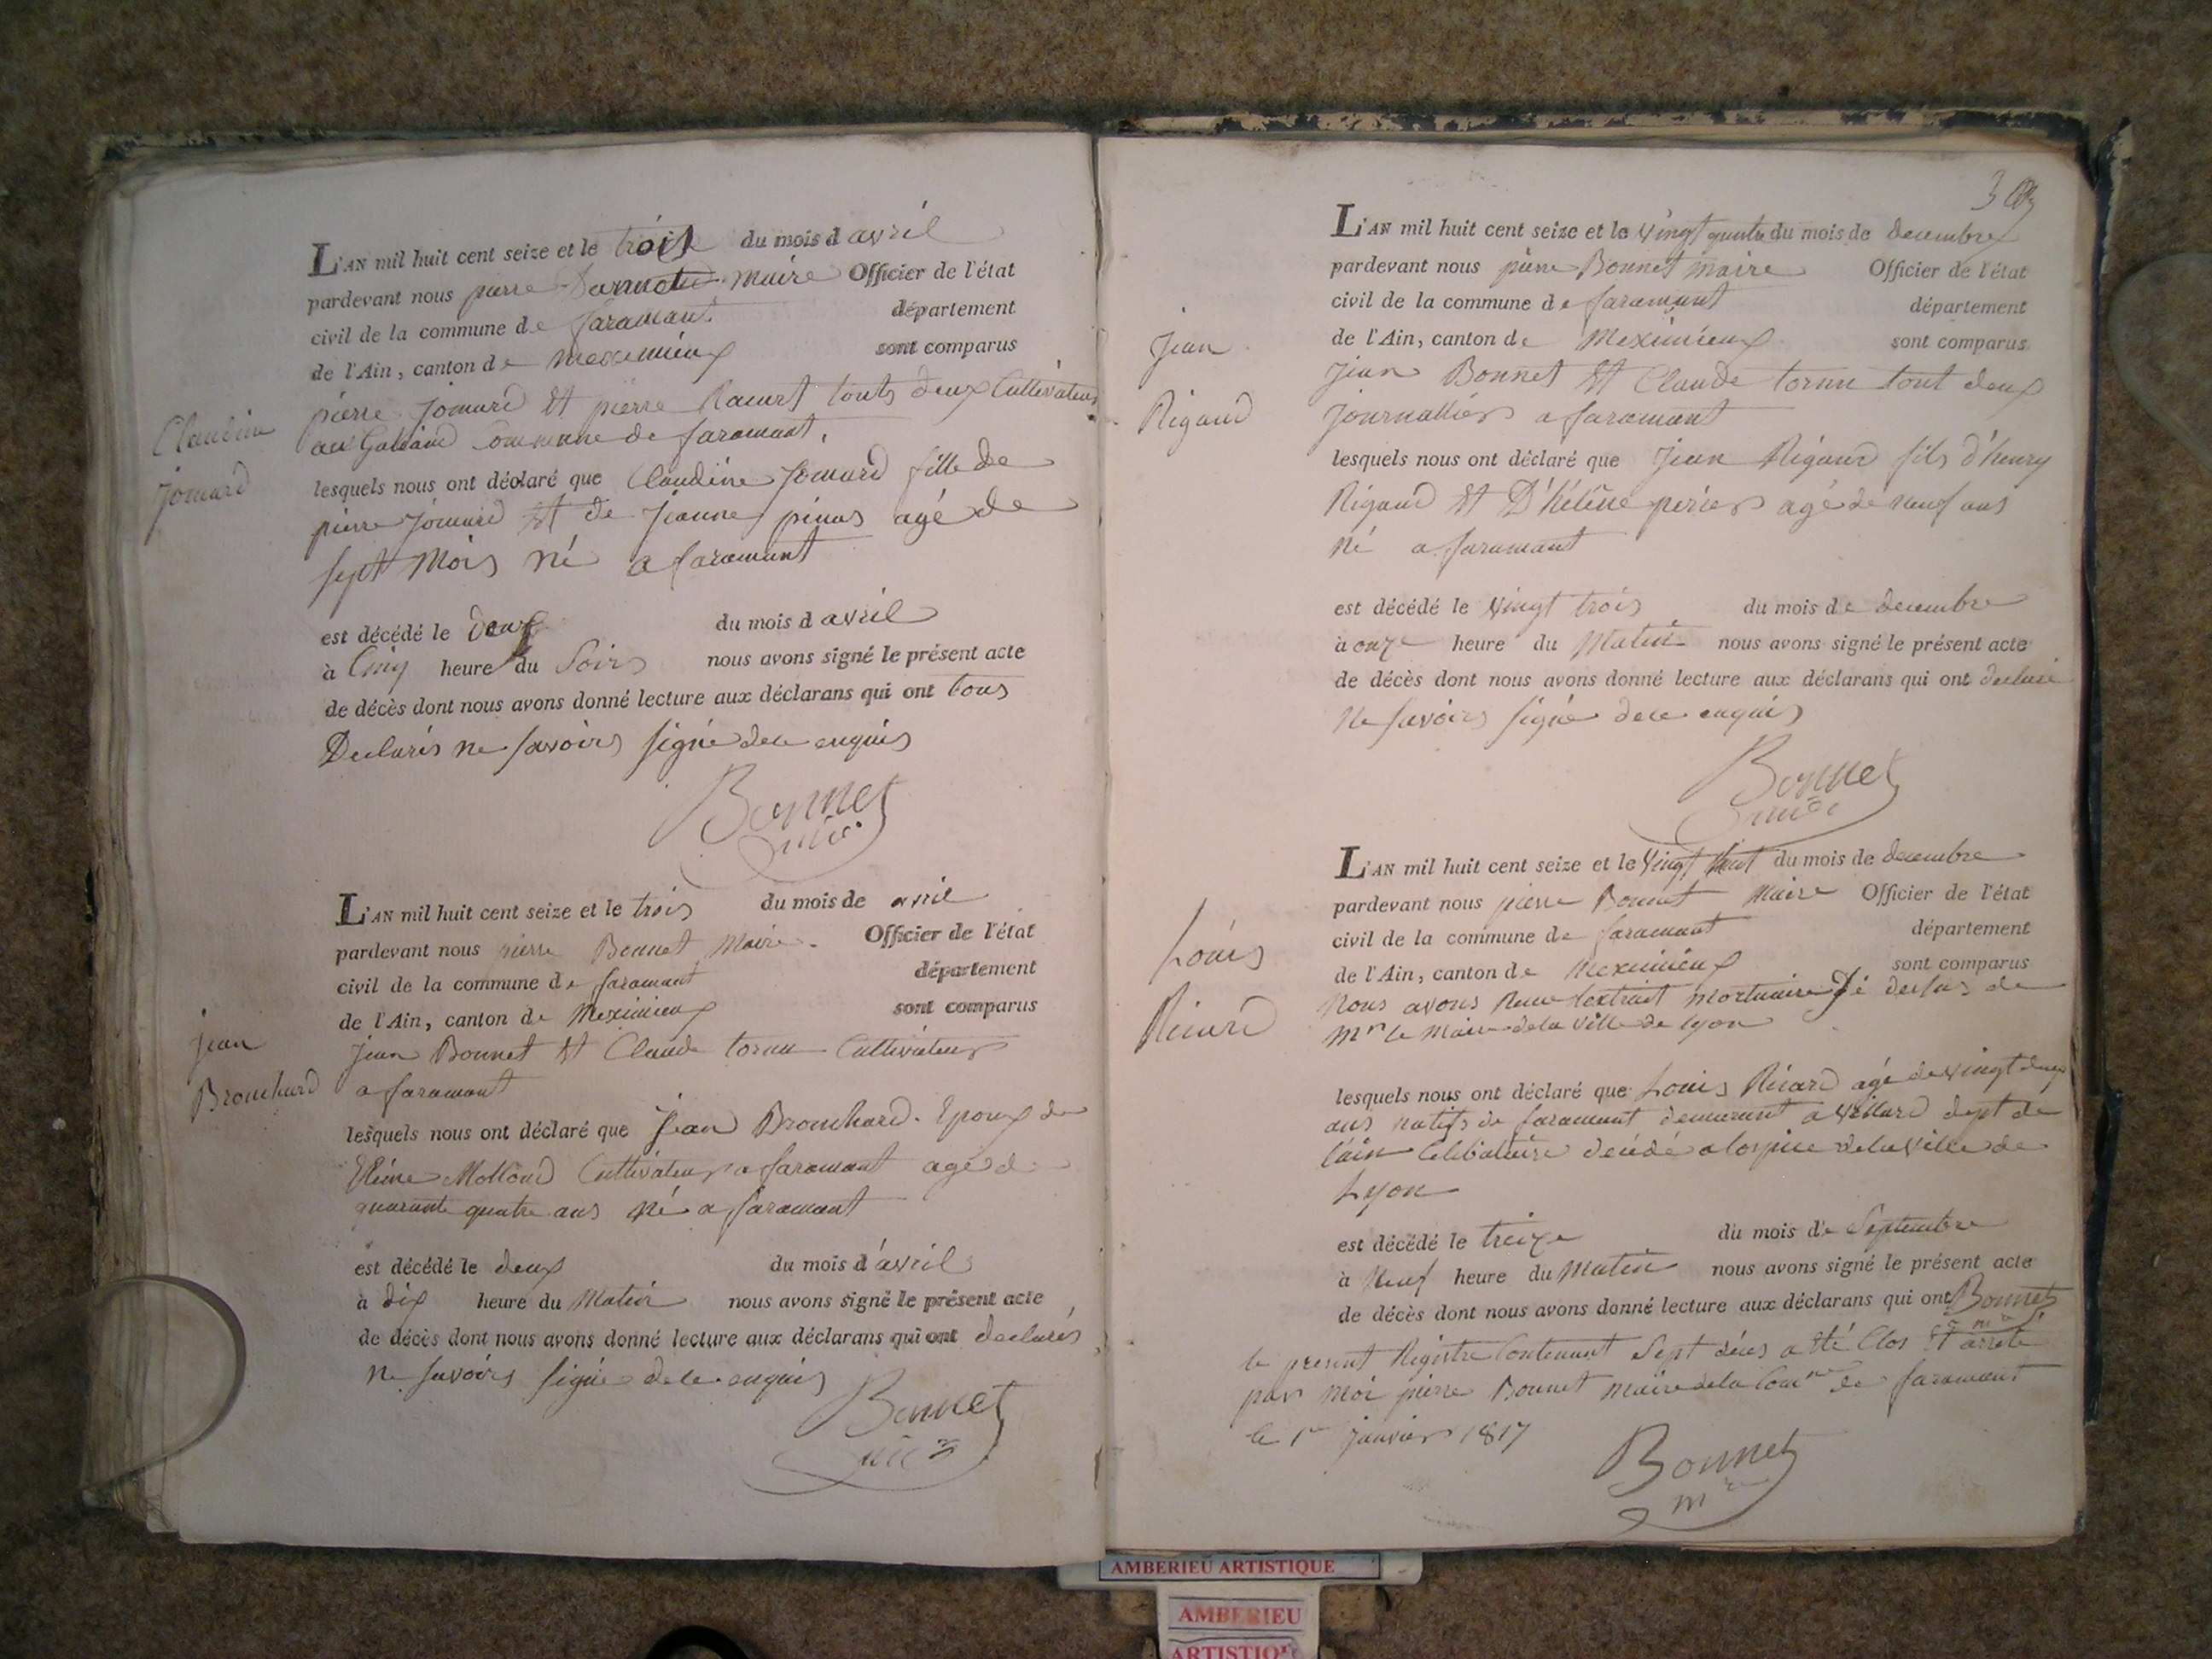 Claudine
Jomard
L'AN mil huit cent seize et le trois du mois d avril
pardevant nous pierre maire Officier de l'état
civil de la commune de faramant département
de l'Ain, canton de meximieux sont comparus
pierre jomard et pierre touts deux Cultivateurs
au Commune de faramant,
lesquels nous ont déclaré que Claudine Jomard fille de
pierre jomard et de jeanne agé de
sept Mois né a faramant
est décédé le deux du mois d avril
à Cinq heure du Soirs nous avons signé le présent acte
de décès dont nous avons donné lecture aux déclarans qui ont tous
Declarés ne savoirs signé de ce enquis
Bonnet
jean
Brouchard
L'AN mil huit cent seize et le trois du mois de avril
pardevant nous pierre Bonnet Maire Officier de l'état
civil de la commune de faramant département
de l'Ain, canton de Meximieux sont comparus
Jean Bonnet et Claude Cultivateurs
a faramant
lesquels nous ont déclaré que Jean Brouchard Epoux de
Cultivateur a faramant agé de
quarante quatre ans né a faramant
est décédé le deux du mois d'avril
à dix heure du Matin nous avons signé le présent acte
de décès dont nous avons donné lecture aux déclarans qui ont declarés
ne savoirs signé de ce enquis
Bonnet
Jean
Rigaud
L'AN mil huit cent seize et le vingt quatre du mois de decembre
pardevant nous pierre Bonnet maire Officier de l'état
civil de la commune de faramant département
de l'Ain, canton de Meximieux sont comparus
Jean Bonnet et Claude tout deux
journalliers a faramant
lesquels nous ont déclaré que Jean Rigaud fils d'henry
Rigaud et D'héléne perier agé de neuf ans
né a faramant
est décédé le vingt trois du mois de decembre
à onze heure du Matin nous avons signé le présent acte
de décès dont nous avons donné lecture aux déclarans qui ont declaré
ne savoirs signé de ce enquis
Bonnet
Louis
Ricard
L'AN mil huit cent seize et le vingt huit du mois de decembre
pardevant nous pierre Bonnet Maire Officier de l'état
civil de la commune de faramant département
de l'Ain, canton de Meximieux sont comparus
Nous avons l'extrait mortuaire de
Mr le Maire de la Ville de Lyon
lesquels nous ont déclaré que Louis Ricard agé de vingt deux
ans natifs de faramant demeurant a dept de
l'ain Celibataire décédé a lospice de la Ville de
Lyon
est décédé le treize du mois de Septembre
à Neuf heure du Matin nous avons signé le présent acte
de décès dont nous avons donné lecture aux déclarans qui ont Bonnet
le present Registre Contenant Sept décés a été Clos et arreté
par moi pierre Bonnet maire de la Comne de faramant
le 1er Janvier 1817
Bonnet
mre
AMBERIEU ARTISTIQUE
AMBERIEU